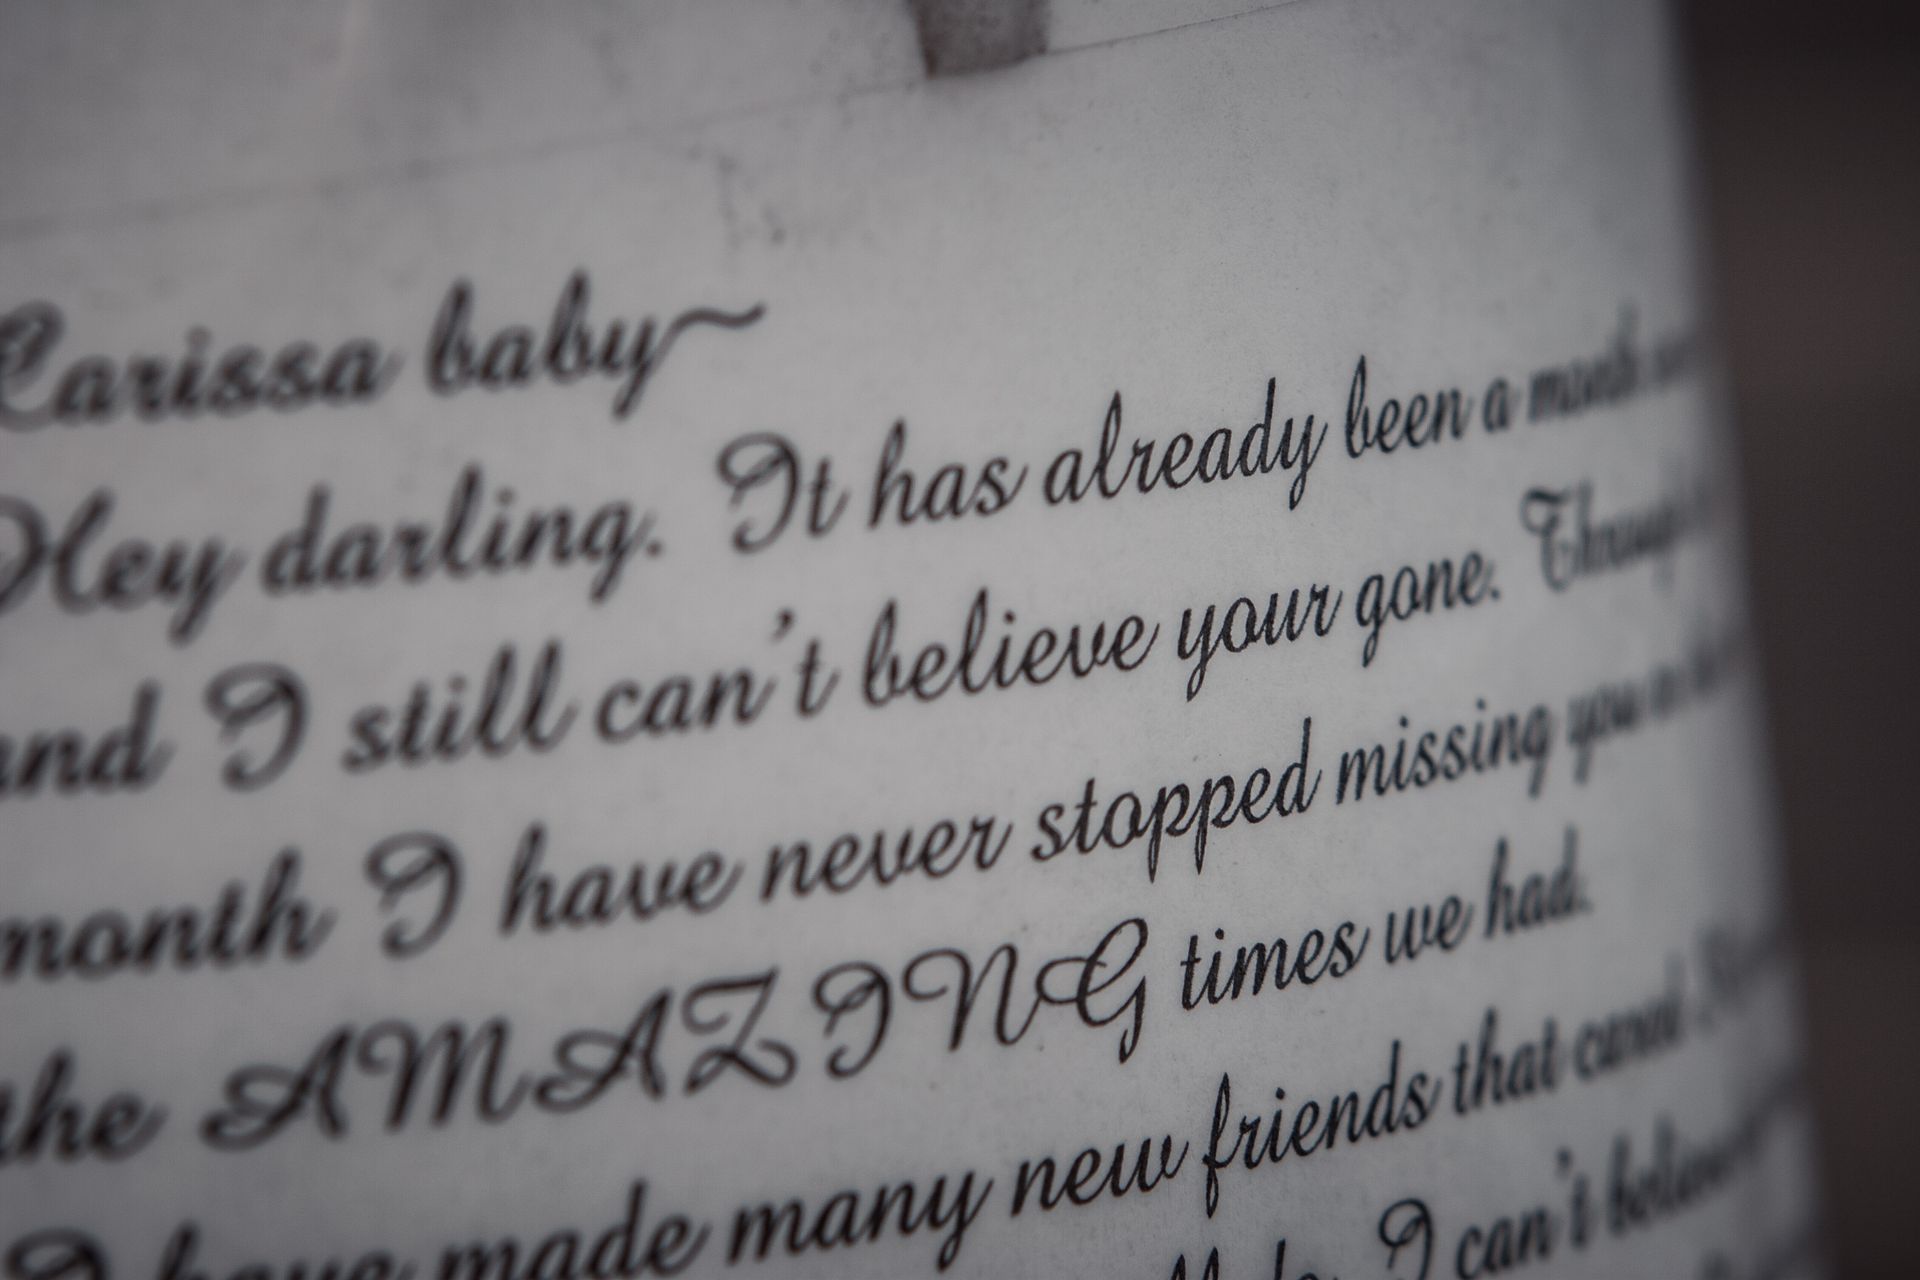 Carissa baby~
Hey darling. It has already been a month
and I still can't believe your gone. Through
month I have never stopped missing you
the AMAZING times we had.
I have made many new friends that
I can't believe